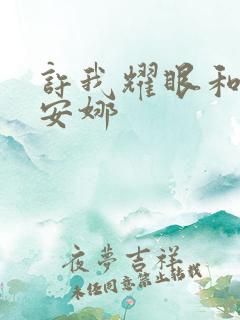 許我耀眼和
安娜
夜夢吉祥
未经同意禁止转载